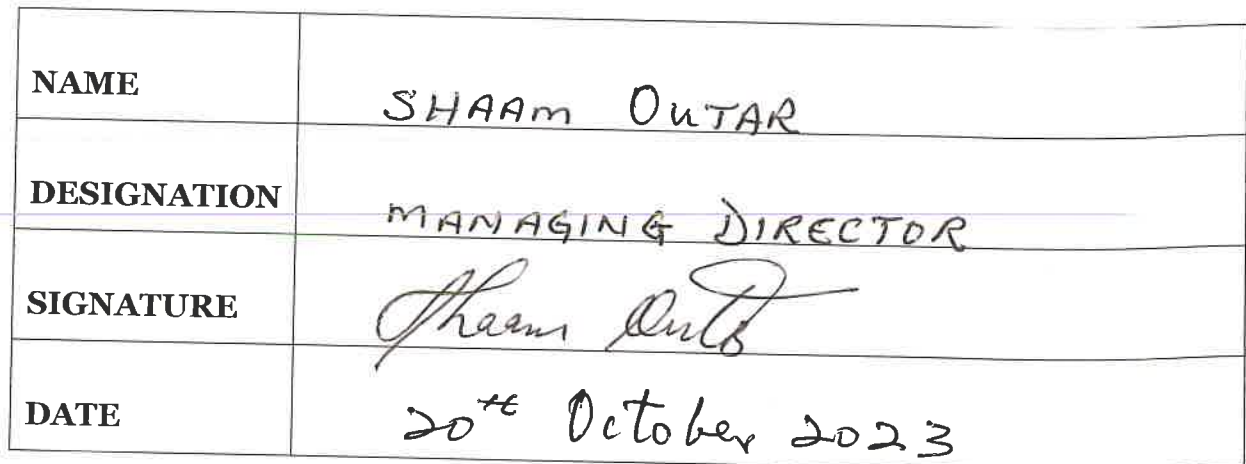 NAME SHAAM OUTAR
DESIGNATION MANAGING DIRECTOR
SIGNATURE Shaam Outar
DATE 20th October 2023